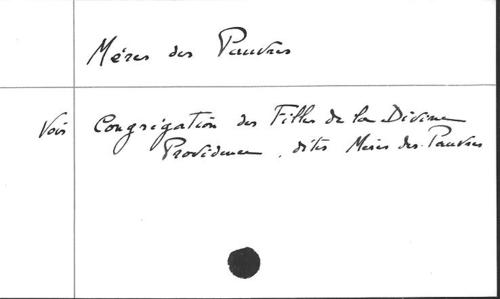 Mères des Pauvres
Voir Congrégation des Filles de la Divine
Providence, dites Mères des Pauvres